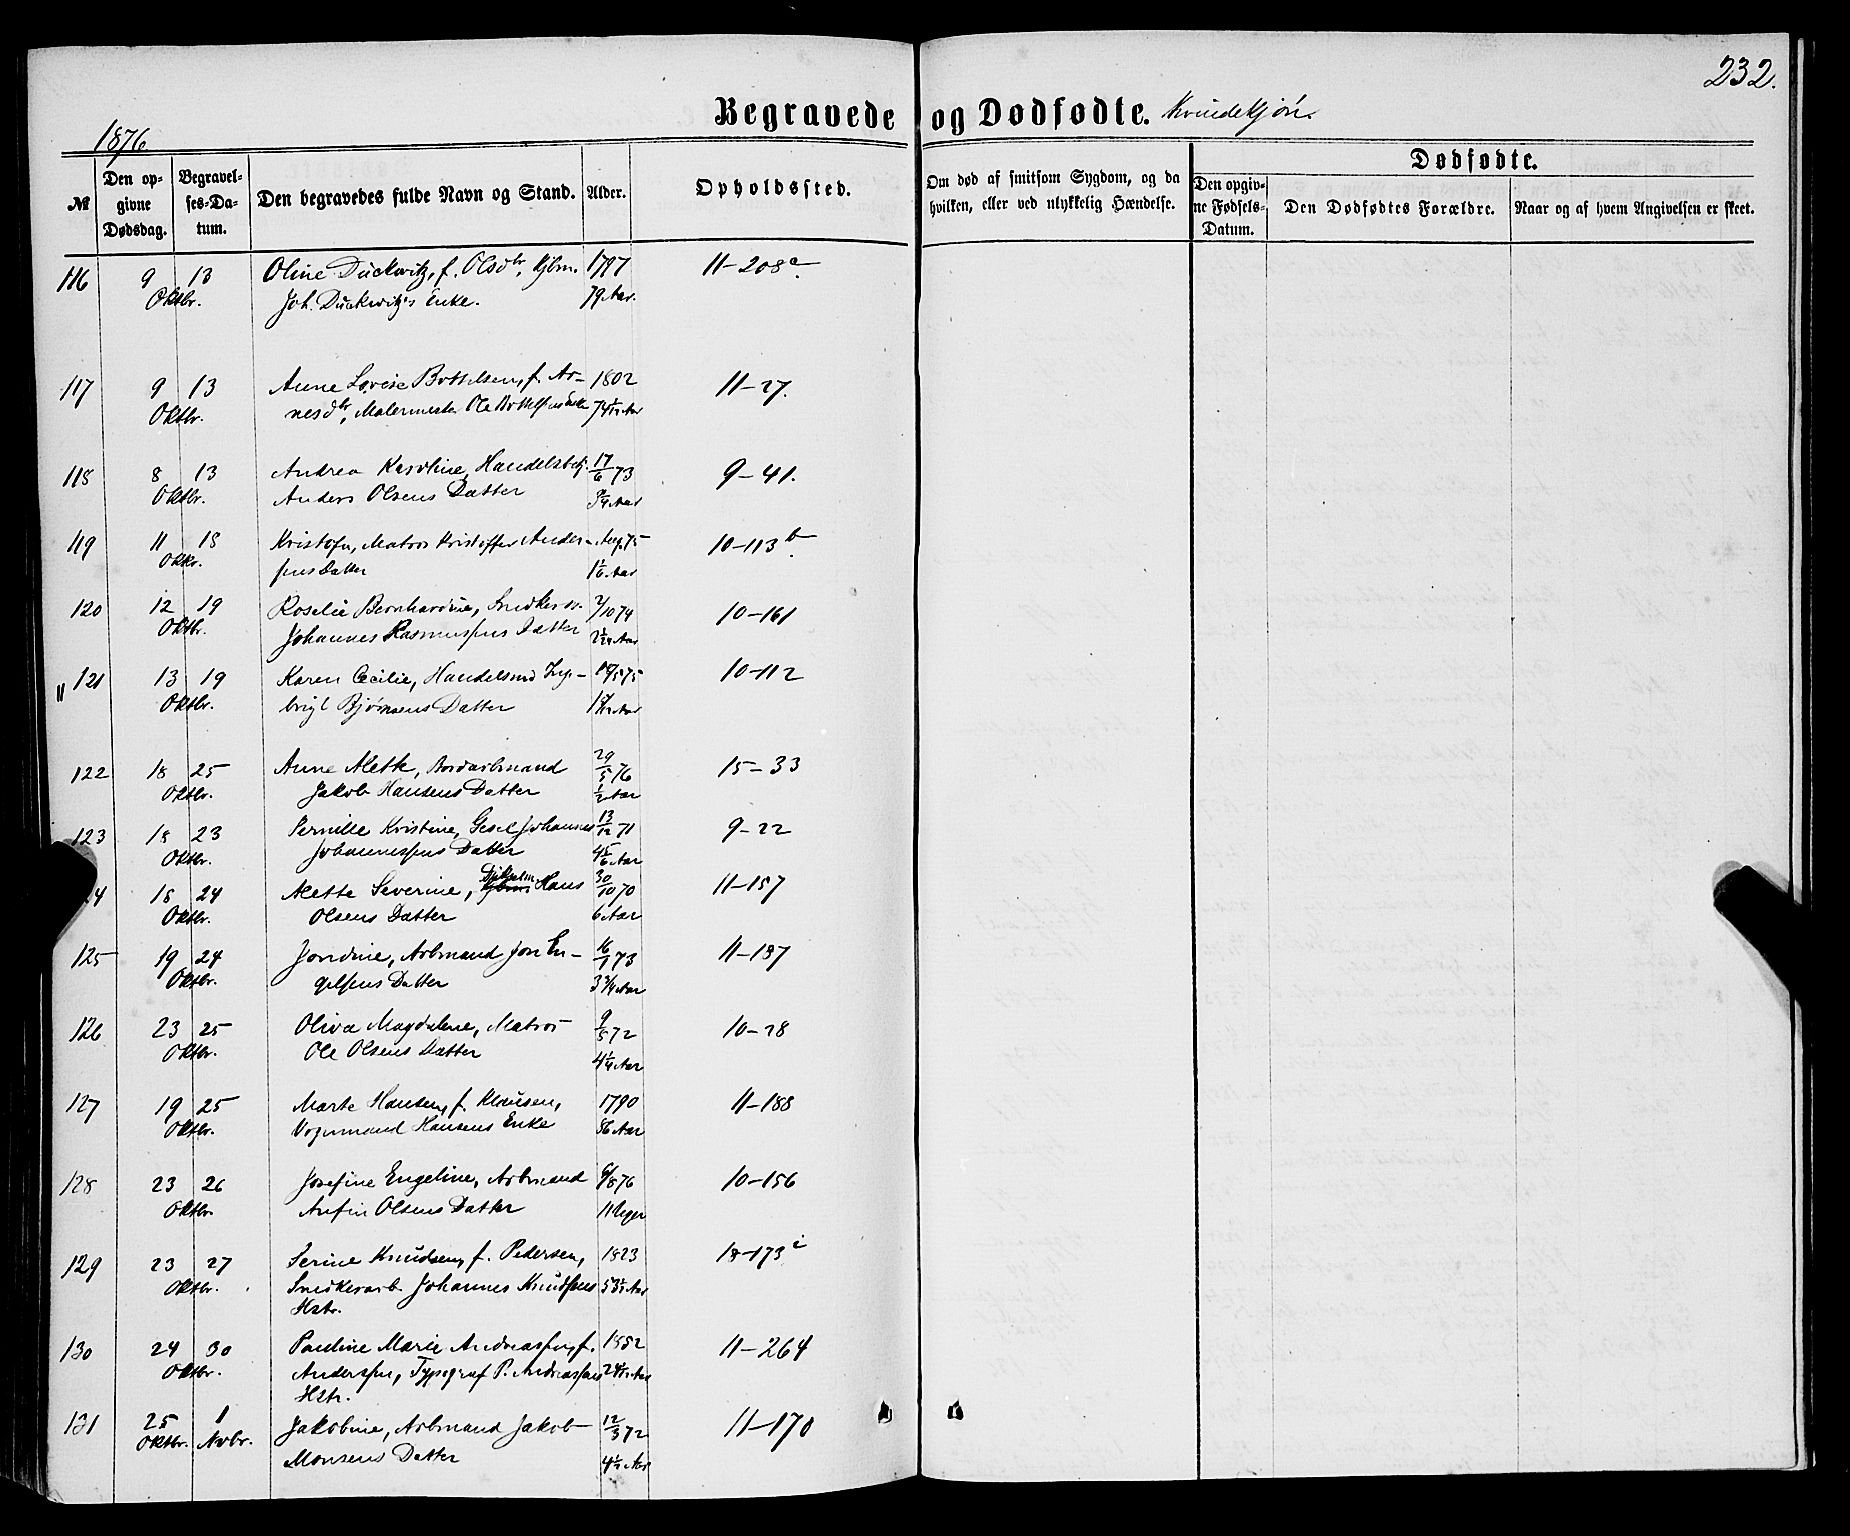 232.
Begravede og Dødfødte. Kvindekjøn.
1876
№
Den op-
givne
Dødsdag.
Begravel-
ses-Da-
tum.
Den begravedes fulde Navn og Stand.
Alder.
Opholdssted.
Om død af smitsom Sygdom, og da
hvilken, eller ved ulykkelig Hændelse.
Dødfødte.
Den opgiv-
ne Fødsels-
Datum.
Den Dødfødtes Forældre.
Naar og af hvem Angivelsen er skeet.
116 9 13 Oline Dückwitz, f. Olsdtr, kjbm. 1797 11-208a
Oktbr. Joh. Dückwitz's Enke. 79 Aar.
117 9 13 Anne Lovise Bottelsen, f. Ar- 1802 11-27.
Oktbr. nesdtr, Malermester Ole Bottelsens Enke 74 Aar
118 8 13 Andrea Karoline, Handelsbetj. 17/6 73 9-41.
Oktbr. Anders Olsens Datter 3 1/4 Aar
119 11 18 Kristofa, Matros Kristoffer Ander- Aug. 75 10-113b
Oktbr. sens Datter 1 1/6 Aar
120 12 19 Roselie Bernhardine, Snedkersv. 2/10 74 10-161
Oktbr. Johannes Rasmussens Datter Aar
" 121 13 19 Karen Cecilie, Handelsmd Inge- 75 10-112
Oktbr. brigt Bjørnsens Datter Aar
122 18 25 Anne Mette, Bordarbmand 29/5 76 15-33
Oktbr. Jakob Hansens Datter 1/2 Aar
123 18 23 Pernille Kristine, Gesel Johannes 13/12 71 9-22
Oktbr. Johannessens Datter 4 5/6 Aar
4 18 24 Mette Severine, Hans 30/10 70 11-157
Oktbr. Olsens Datter 6 Aar
125 19 24 Jondine, Arbmand Jon En- 16/1 73 11-187
Oktbr. gelsens Datter 3 3/4 Aar
126 23 25 Oliva Magdalene, Matros 9/5 72 10-28
Oktbr. Ole Olsens Datter 4 1/4 Aar
127 19 25 Marte Hansen, f. Klausen, 1790 11-188
Oktbr. Vognmand Hansens Enke 86 Aar
128 23 26 Josefine Engeline, Arbmand 6/8 76 10-156
Oktbr. Anfin Olsens Datter 11 Uger
129 23 27 Serine Knudsen, f. Pedersen, 1823 18-173i
Oktbr. Snedkerarb. Johannes Knudsens 53 Aar
Hstr.
130 24 30 Pauline Marie Andreassen, f. 1852 11-264
Oktbr. Andersen, Typograf P. Andreassens 24 Aar
Hstr.
131 25 1 Jakobine, Arbmand Jakob 12/3 72 11-170
Oktbr. Novbr. Monsens Datter 4 1/2 Aar